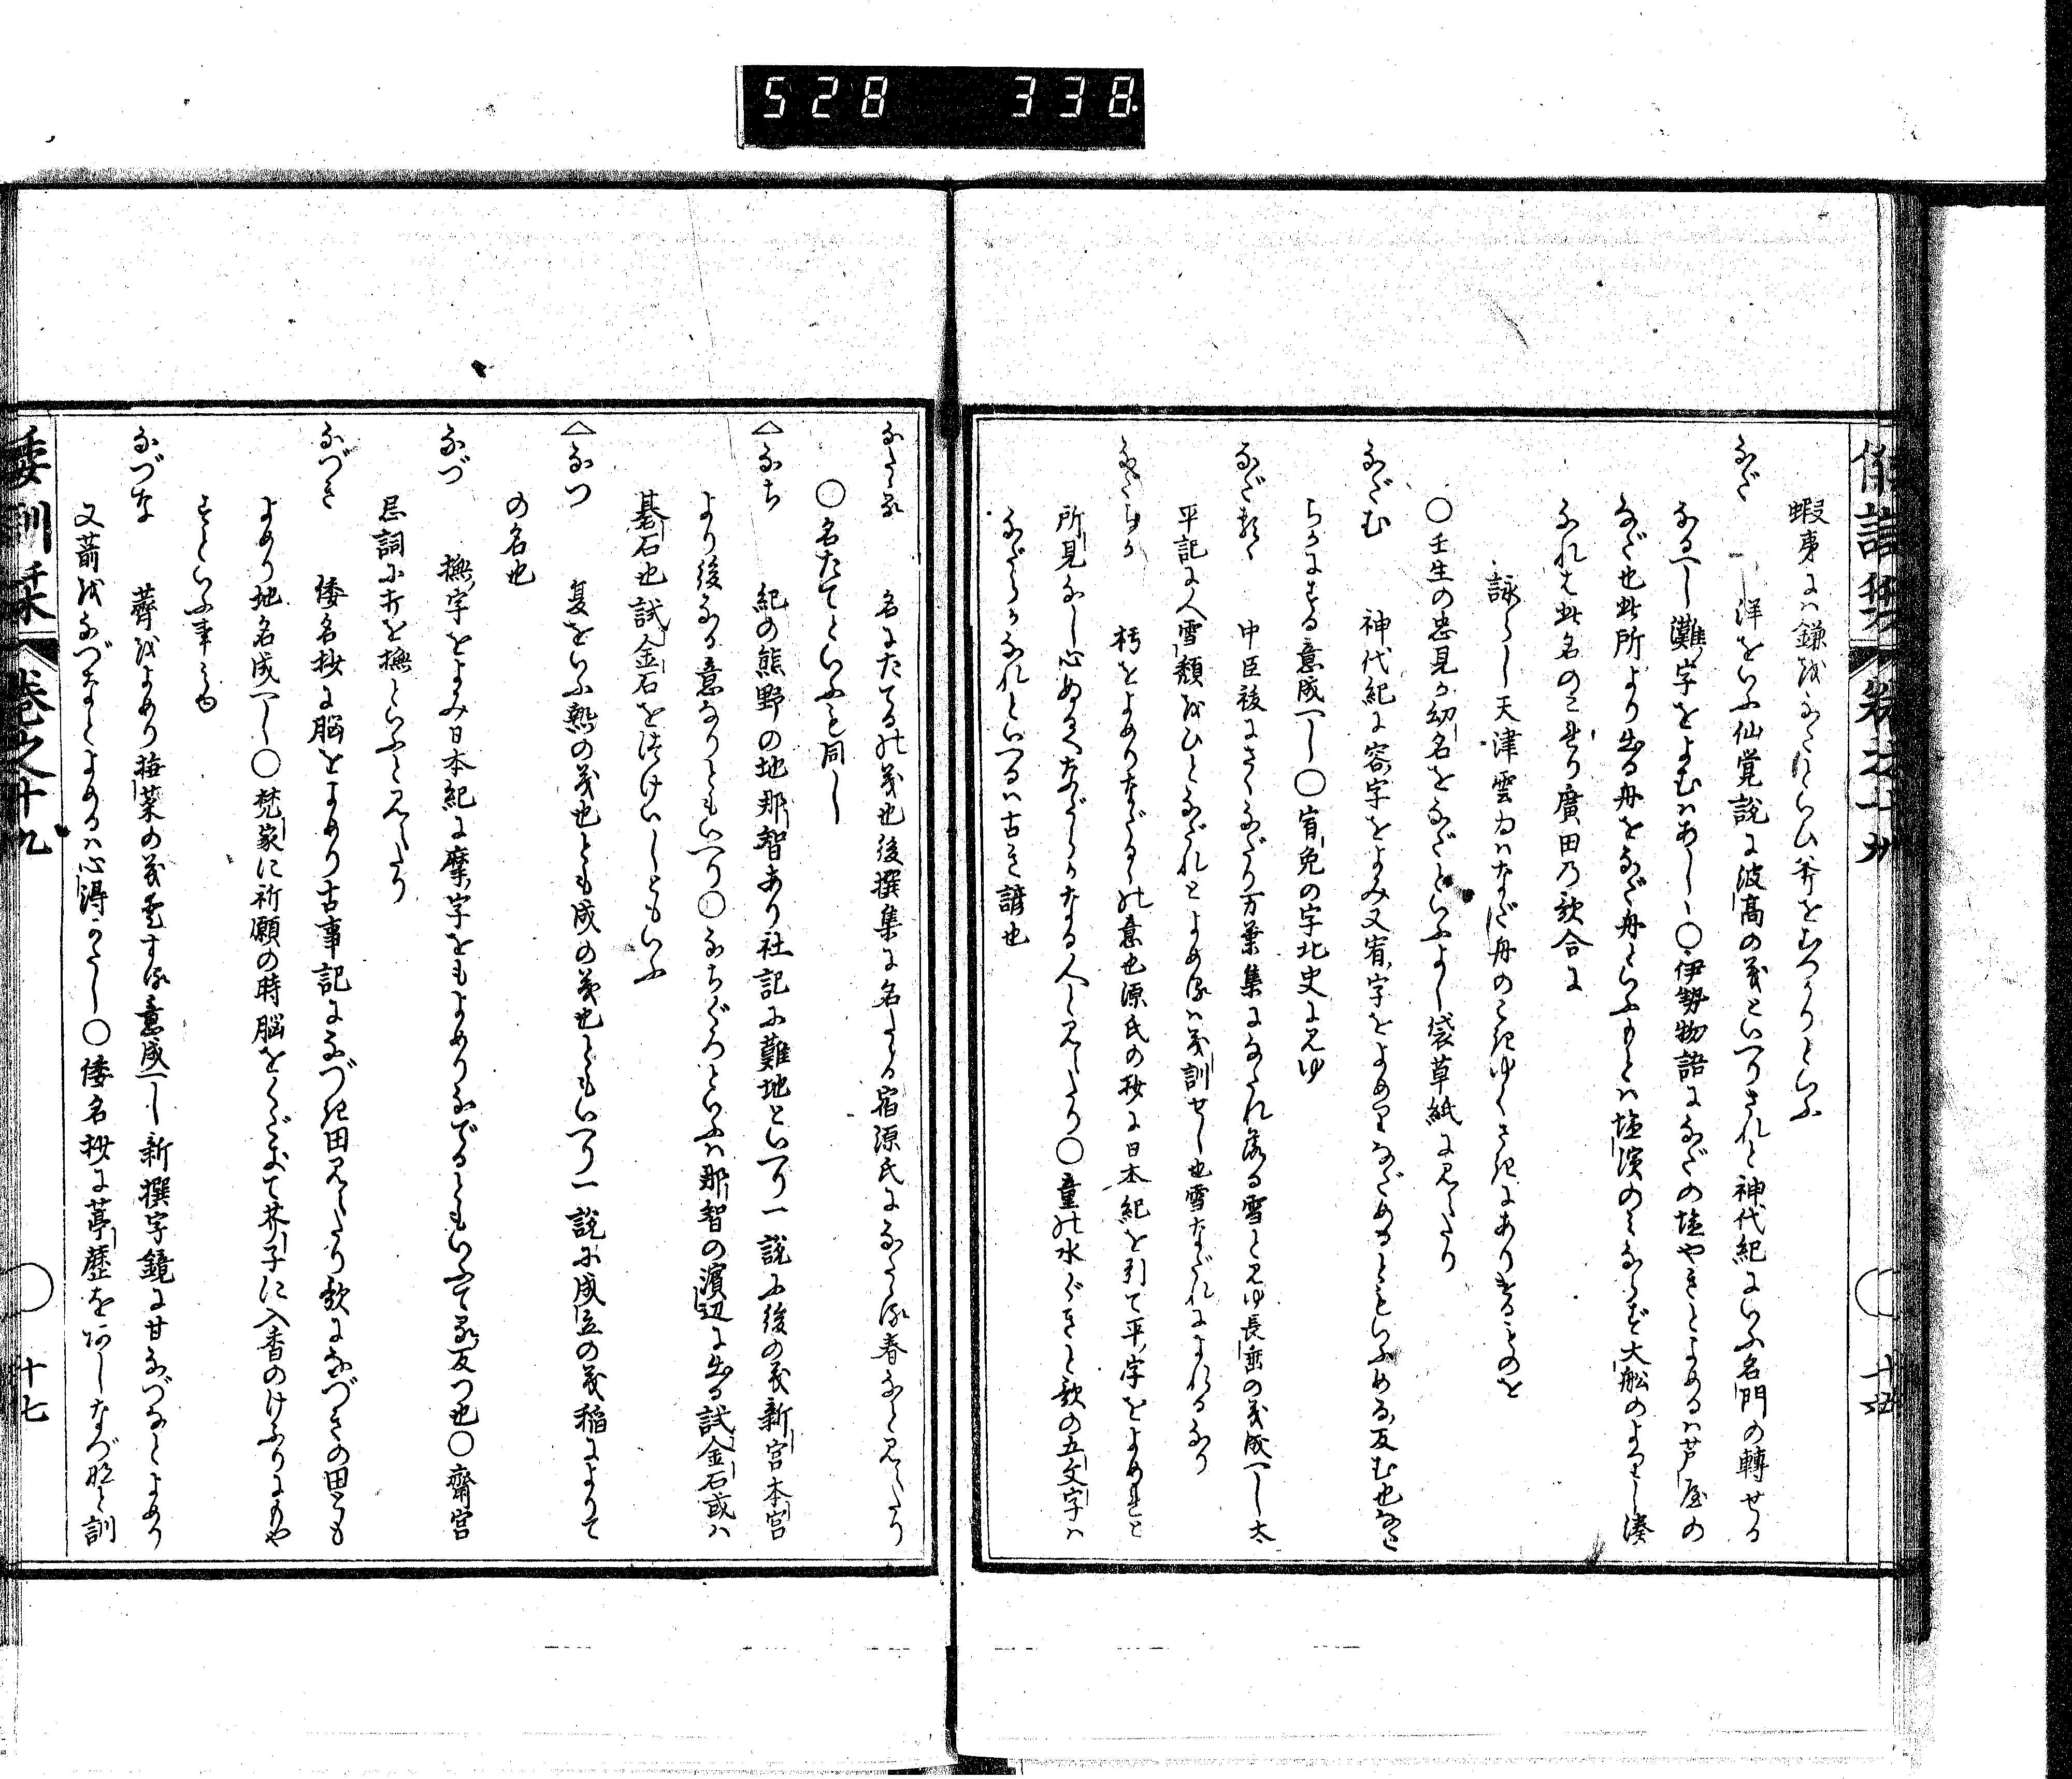 528 338
蝦夷には鎌をなたといひ斧をむかりといふ
なだ 洋をいふ仙覚説に波高の義といへりされと神代紀にいふ名門の轉せる
なるへし灘字をよむはあしゝ○伊勢物語になだの塩やきとよめるは芦屋の
なだ也此所より出る舟をなだ舟といふもとは塩濱のみならず大船のよりし湊
なれは此名のこれり廣田乃歌合に
詠し天津雲ゐはなだ舟のこきゆくさきにありけるものを
○壬生の忠見か幼名をなだといふよし袋草紙に見えたり
なだむ 神代紀に容字をよみ又宥字をよめりなだめるともいふめる反む也なたらかにする意成へし○宥免の字北史に見ゆ
なだれ 中臣祓にさくなだり万葉集になたれ落る雪と見ゆ長垂の義成へし太
平記に人雪頽をひとなだれとよめるは義訓せし也雪なだれによれるなり
なたらか 朽をよめりなだるゝの意也源氏の抄に日本紀を引て平字をよめれと
所見なし心ぬるくなだらかなる人と見えたり○童の水ぐきと歌の五文字は
なだらかなれといへるは古き諺也
なたゝる 名にたてるの義也後撰集に名たゝる宿源氏になたゝる春なと見えたり
○名たてといふも同し
△なち 紀の熊野の地那智あり社記に難地といへり一説に後の義新宮本宮
より後なる意なりともいへり○なちぐろといふは那智の濱辺に出る試金石或は
碁石也試金石をつけいしともいふ
△なつ 夏をいふ熱の義也とも成の義也ともいへり一説に成立の義稲によりて
の名也
なづ 撫字をよみ日本紀に摩字をもよめりなでるともいふてる反つ也○齋宮
忌詞に打を撫といふと見えたり
なづき 倭名抄に脳をよめり古事記になづき田見えたり歌になづきの田とも
よめり地名成へし○梵家に祈願の時脳をくだきて芥子に入香のけふりにもや
すといふ事みゆ
なづな 薺をよめり撫菜の義愛する意成へし新撰字鏡に甘なづなとよめり
又莇をなづなとよめるは心得かたし○倭名抄に葶藶をはしなづなと訓
倭訓栞 巻之十九 ○ 十七